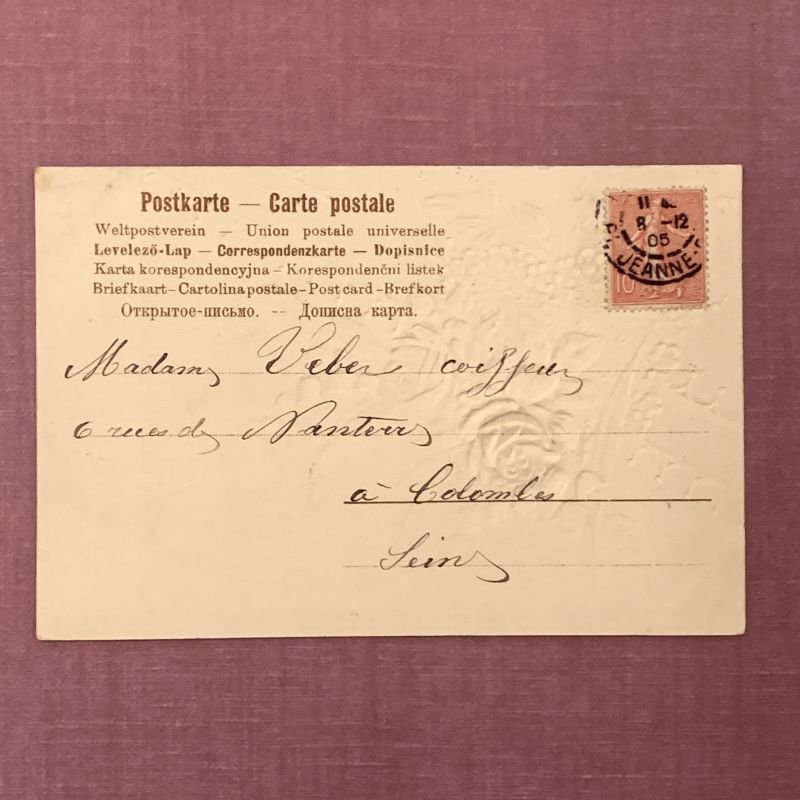 Postkarte — Carte postale
Weltpostverein — Union postale universelle
Levelező-Lap — Correspondenzkarte — Dopisnice
Karta korespondencyjna – Korespondenční lístek
Briefkaart – Cartolina postale – Post card – Brefkort
Открытое-письмо. -- Дописна карта.
11
8 -12
05
JEANNE
10
Madame Veber coiffeur
6 rue de Nanterre
à Colombes
Seine